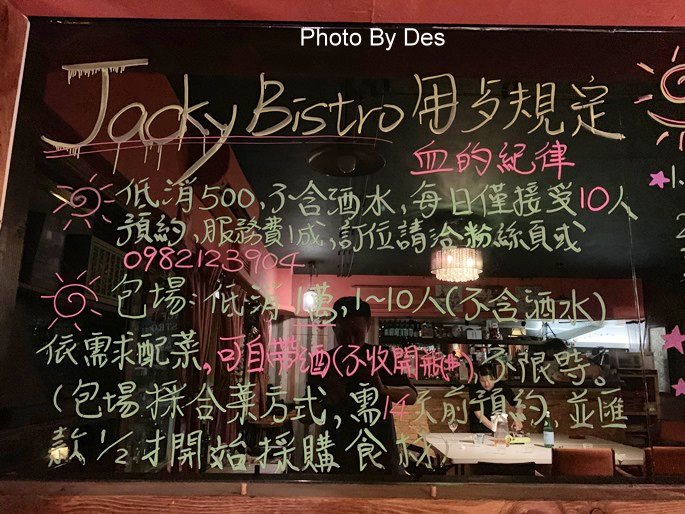 Photo By Des
Jacky Bistro 用歺規定
血的紀律
低消500,不含酒水,每日僅接受10人
預約,服務費1成,訂位請洽粉絲頁或
0982123904
包場:低消1萬,1~10人(不含酒水)
依需求配菜,可自帶酒(不收開瓶費),不限時。
(包場採合菜方式,需14天前預約,並匯
款1/2才開始採購食材)